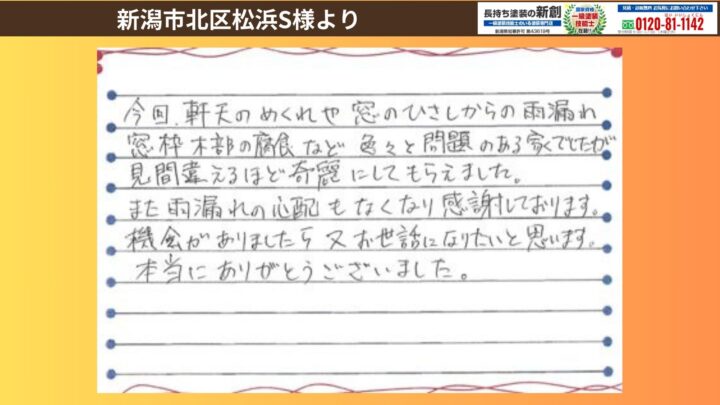 新潟市北区松浜S様より
長持ち塗装の新創
一級塗装技能士のいる塗装専門店
国家資格
一級塗装
技能士
在籍!!
0120-81-1142
今回、軒天のめくれや窓のひさしからの雨漏れ
窓枠木部の腐食など色々と問題のある家でしたが
見間違えるほど奇麗にしてもらえました。
また雨漏れの心配もなくなり感謝しております。
機会がありましたら又お世話になりたいと思います。
本当にありがとうございました。